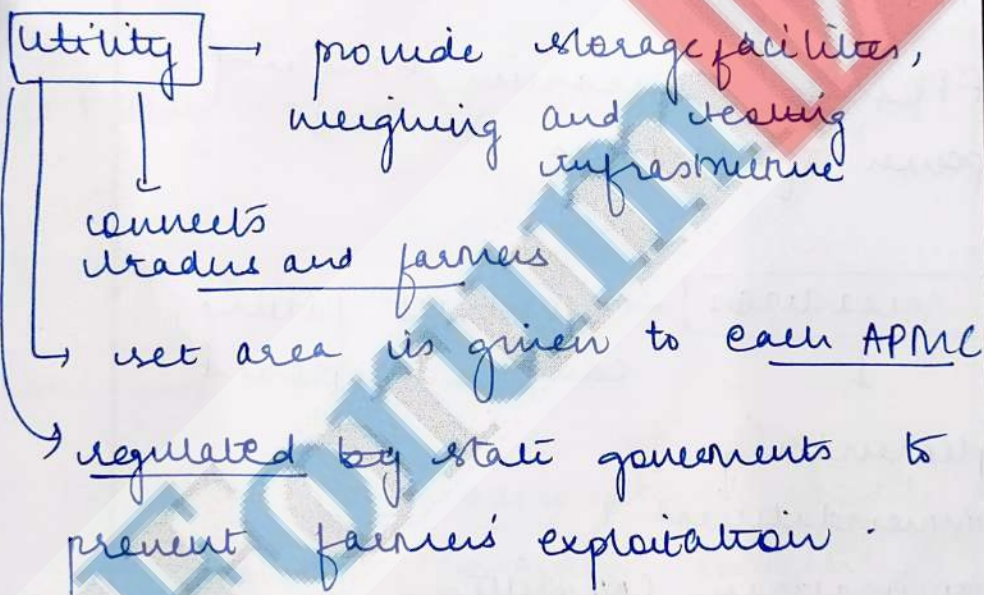 Utility → provide storage facilities,
weighing and testing
infrastructure
connects
traders and farmers
→ set area is given to each APMC
→ regulated by state governments to
prevent farmers' exploitation.
Forum